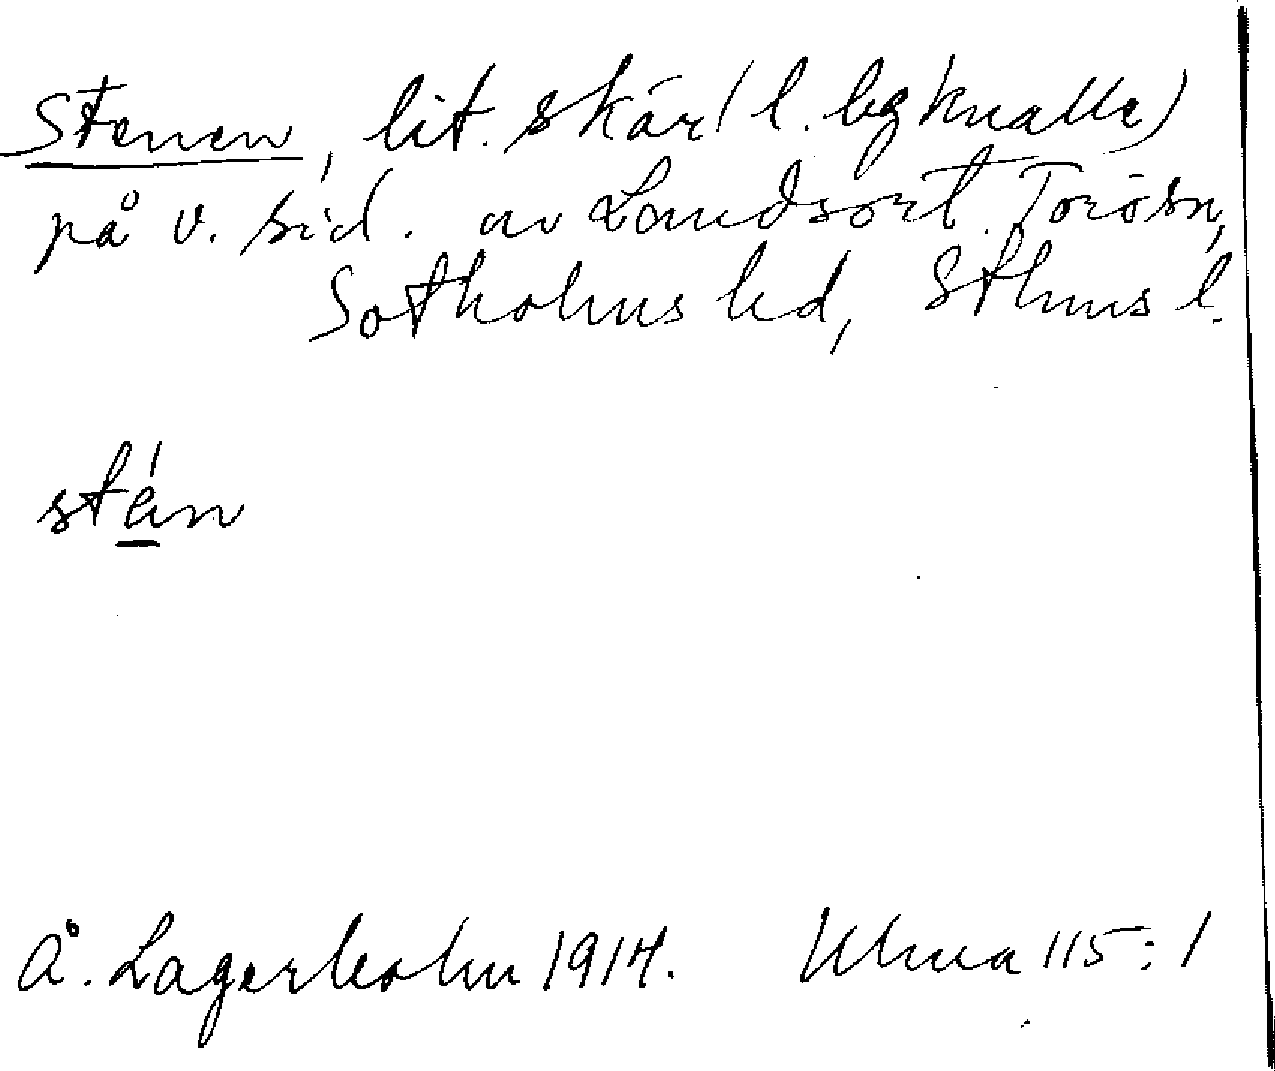 Stenen, lit. skär (l. bg knalle)
på v. sid. av Landsort. Torösn,
Sotholms hd, Sthms l.
stén
Å. Lagerholm 1914. Ulma 115:1